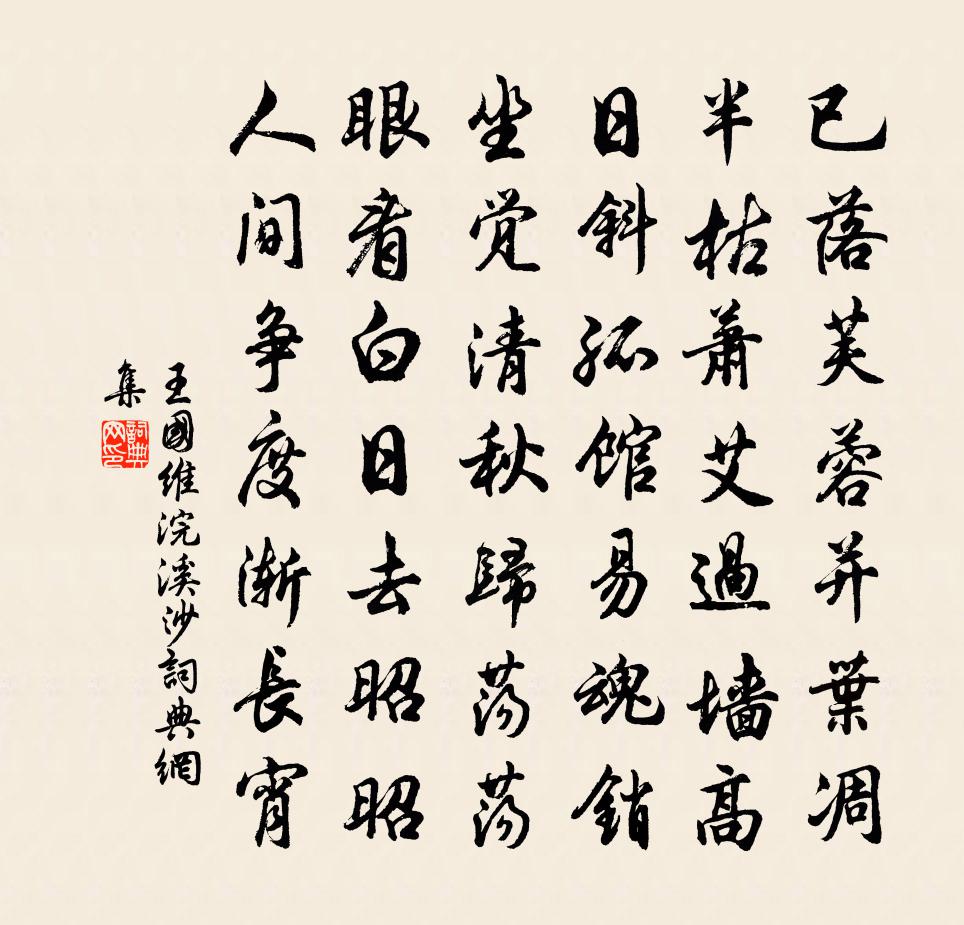 已落芙蓉并葉凋
半枯蕭艾過墻高
日斜孤馆易魂銷
坐觉清秋歸荡荡
眼看白日去昭昭
人间争度渐長宵
王國維浣溪沙詞典網
集
詞典网印